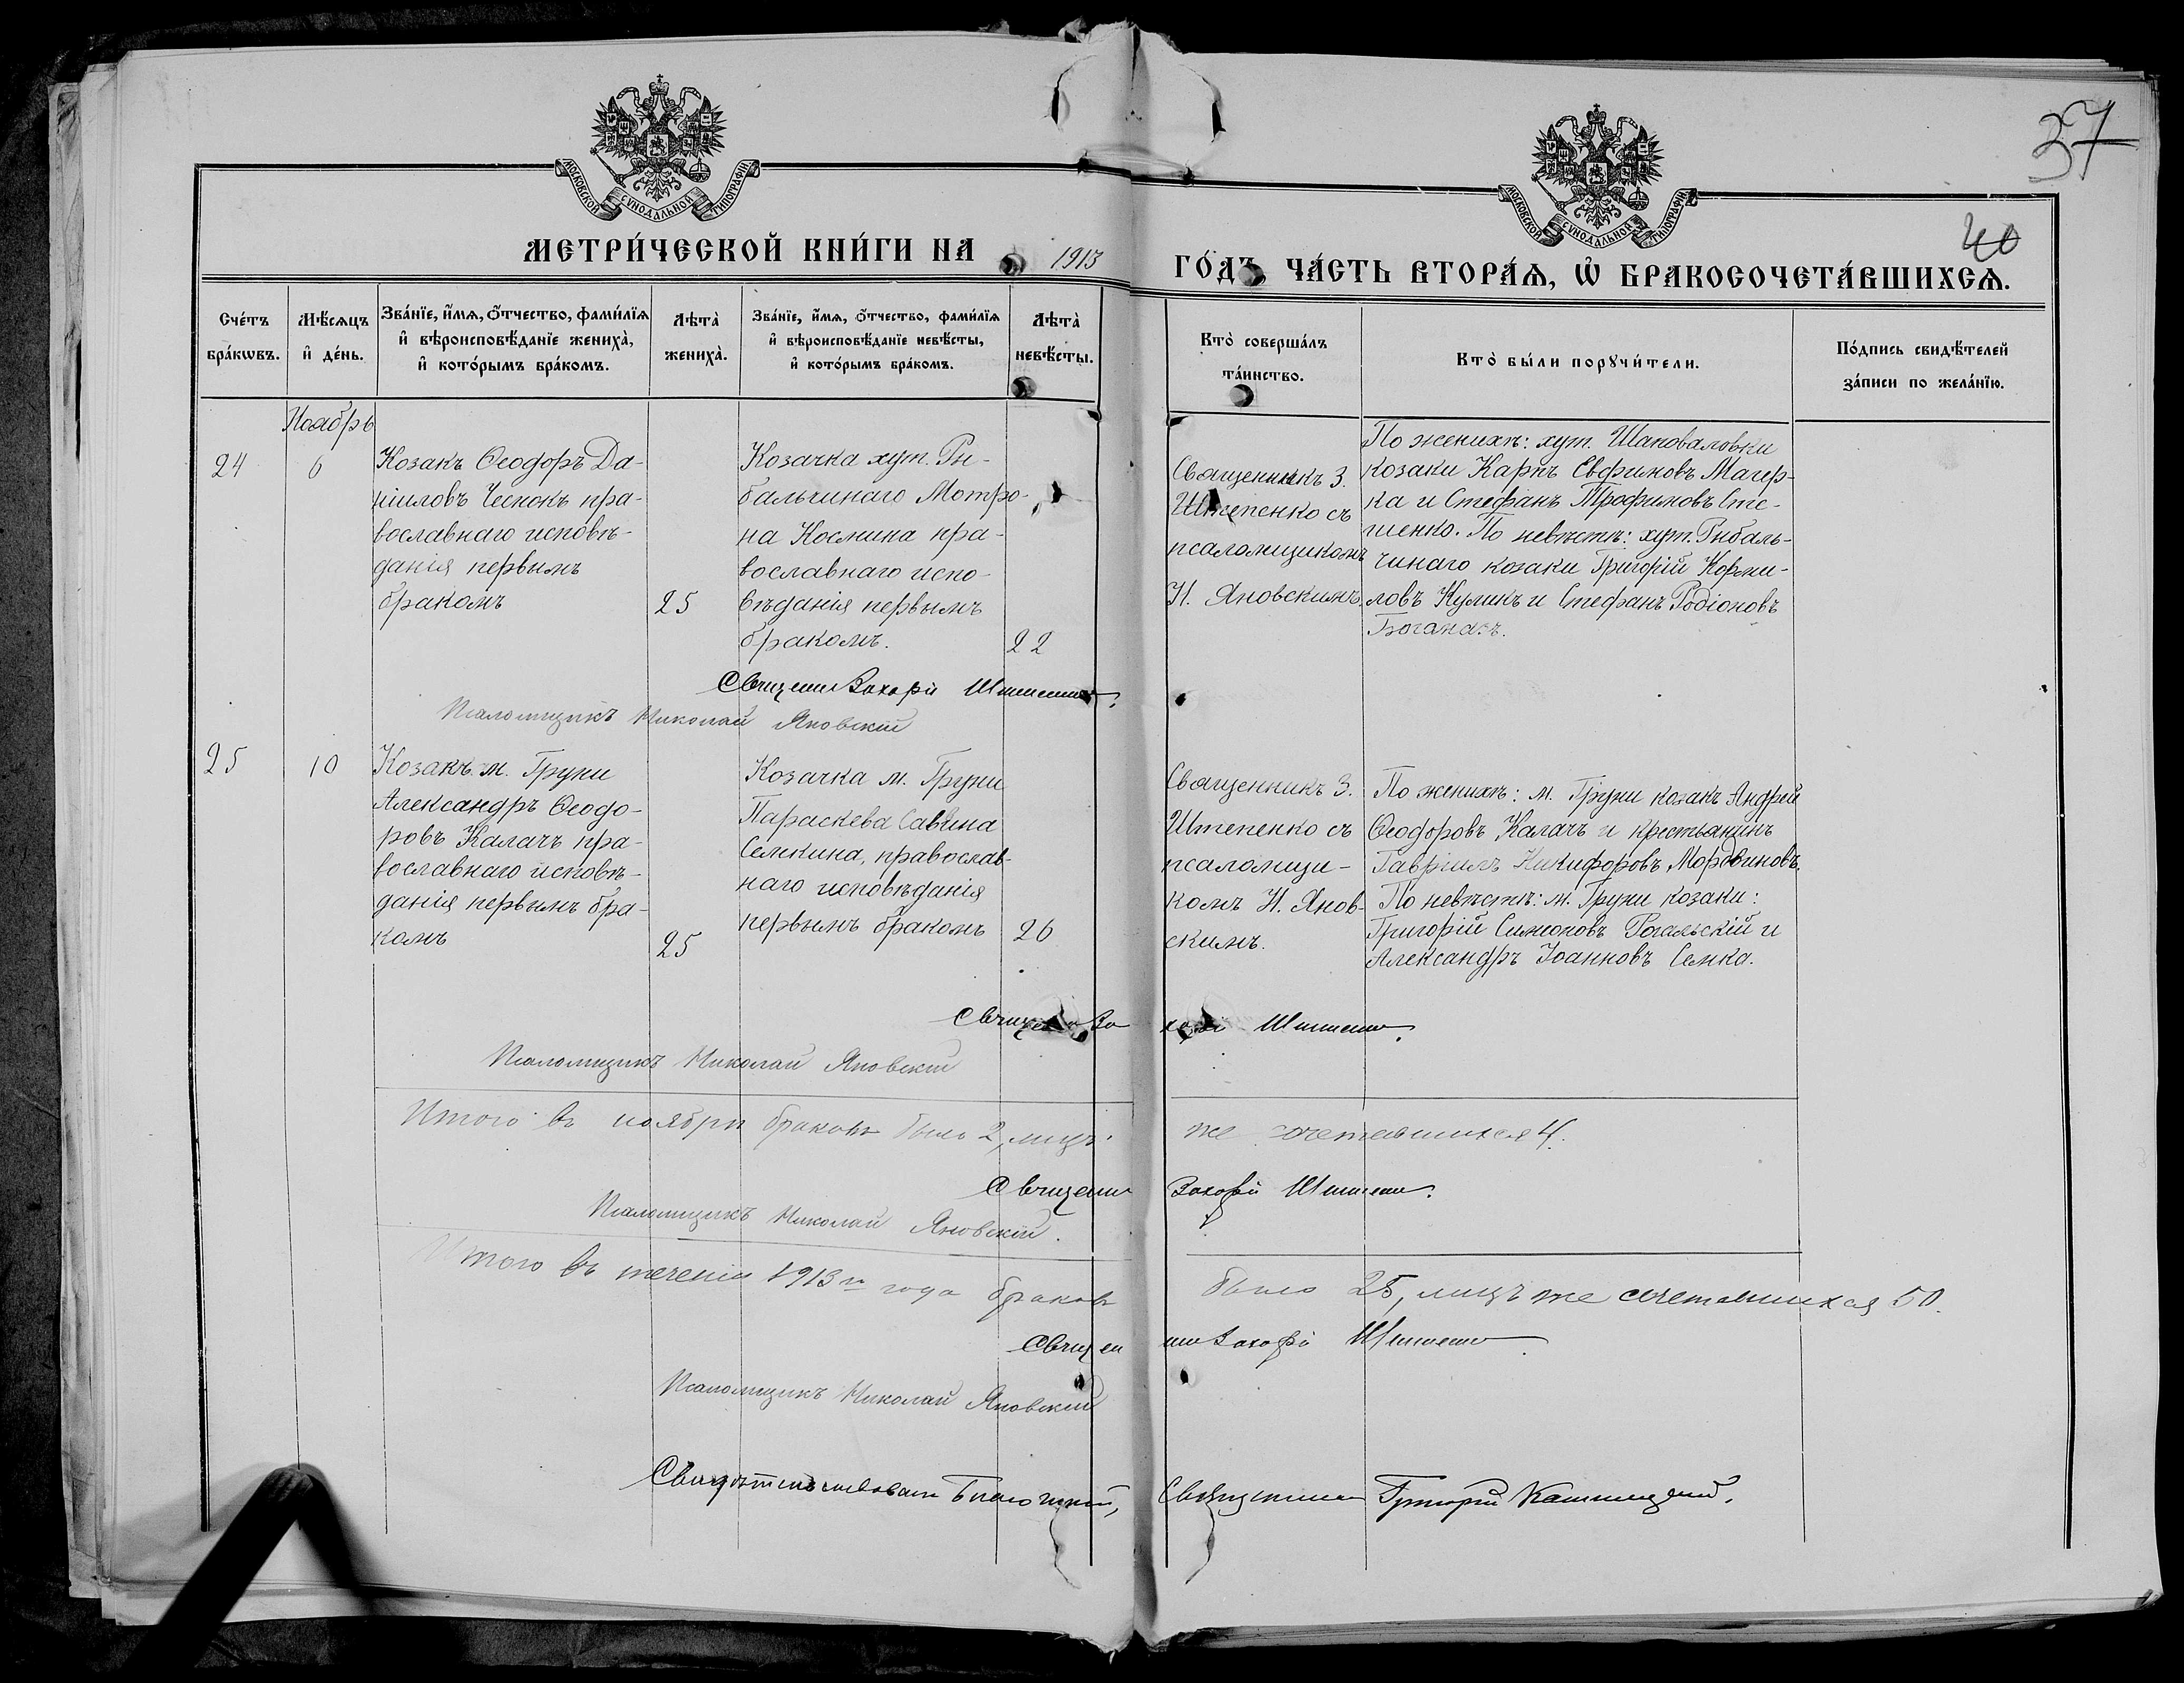 37
40
МОСКОВСКОЙ СѴНОДАЛЬНОЙ ТИПОГРАФІИ
МОСКОВСКОЙ СѴНОДАЛЬНОЙ ТИПОГРАФІИ
МЕТРИ́ЧЕСКОЙ КНИ́ГИ НА 1913 ГО́ДЪ, ЧА́СТЬ ВТОРА́Ѧ, Ѡ҆ БРАКОСОЧЕТА́ВШИХСѦ.
Сче́тъ
бра́кѡвъ.
Мѣ́сяцъ
и҆ де́нь.
Зва́нїе, и҆́мѧ, ѻ҆́тчество, фами́лїѧ
и҆ вѣроисповѣ́данїе жениха̀,
и҆ кото́рымъ бра́комъ.
Лѣта̀
жениха̀.
Зва́нїе, и҆́мѧ, ѻ҆́тчество, фами́лїѧ
и҆ вѣроисповѣ́данїе невѣ́сты,
и҆ кото́рымъ бра́комъ.
Лѣта̀
невѣ́сты.
Кто̀ соверша́лъ
та́инство.
Кто̀ бы́ли порꙋчи́тели.
По́дпись свидѣ́телей
за́писи по жела́нїю.
Ноябрь
24
6
Козакъ Ѳеодоръ Да-
ніиловъ Чеснокъ пра-
вославнаго исповѣ-
данія первымъ
бракомъ
25
Козачка хут. Ры-
бальчинаго Мотро-
на Космина пра-
вославнаго испо-
вѣданія первымъ
бракомъ.
22
Священникъ З.
Штепенко съ
псаломщикомъ
Н. Яновскимъ.
По женихѣ: хут. Шаповаловки
козаки Карпъ Евфимовъ Магер-
ка и Стефанъ Трофимовъ Сте-
пиенко. По невѣстѣ: хут. Рыбаль-
чинаго козаки Григорій Корни-
ловъ Куликъ и Стефанъ Родіоновъ
Священ Захарій Штепенко.
Псаломщикъ Николай Яновскій
25
10
Козакъ м. Груни
Александръ Ѳеодо-
ровъ Калачъ пра-
вославнаго исповѣ-
данія первымъ бра-
комъ
25
Козачка м. Груни
Параскева Саввина
Семкина, православ-
наго исповѣданія
первымъ бракомъ
26
Священникъ З.
Штепенко съ
псаломщи-
комъ Н. Янов-
скимъ.
По женихѣ: м. Груни козакъ Андрей
Ѳеодоровъ Калачъ и крестьянинъ
Гавріилъ Никифоровъ Мордвиновъ.
По невѣстѣ: м. Груни козаки:
Григорій Симеоновъ Рогальскій и
Александръ Іоанновъ Семка.
Священ Захарій Штепенко.
Псаломщикъ Николай Яновскій
Итого въ ноябрѣ браковъ было 2, лицъ же сочетавшихся 4.
Священ Захарій Штепенко.
Псаломщикъ Николай Яновскій.
Итого въ теченіи 1913 го года браковъ было 25, лицъ же сочетавшихся 50.
Священ Захарій Штепенко.
Псаломщикъ Николай Яновскій
Свидѣтельствовалъ Благочинный, Священникъ Григорій